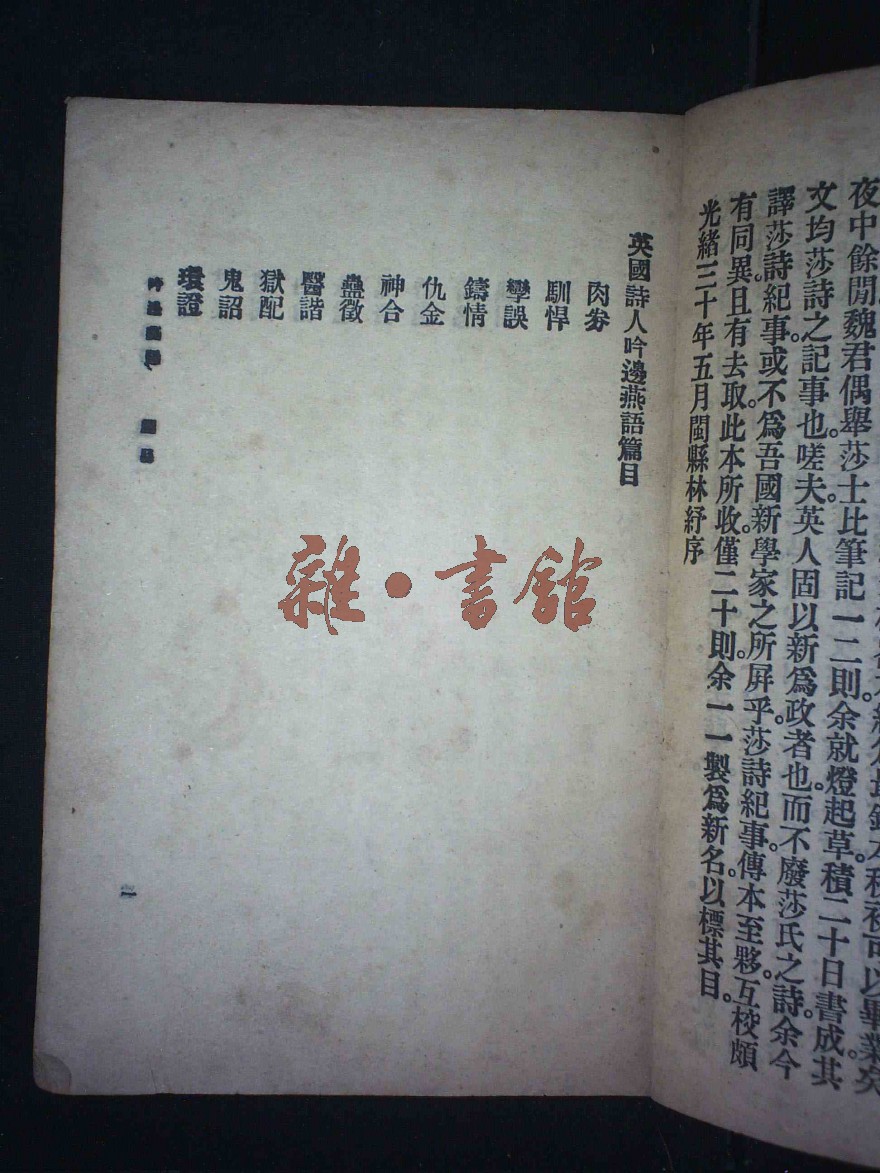 夜中餘閒魏君偶舉莎士比筆記一二則余就燈起草積二十日書成其
文均莎詩之記事也嗟夫英人固以新為政者也而不廢莎氏之詩余今
譯莎詩紀事或不為吾國新學家之所屏乎莎詩紀事傳本至夥互校頗
有同異且有去取此本所收僅二十則余一一製為新名以標其目
光緒三十年五月閩縣林紓序
英國詩人吟邊燕語篇目
肉券
馴悍
孿誤
鑄情
仇金
神合
蠱徵
醫諧
獄配
鬼詔
環證
吟邊燕語
一
雜·書館